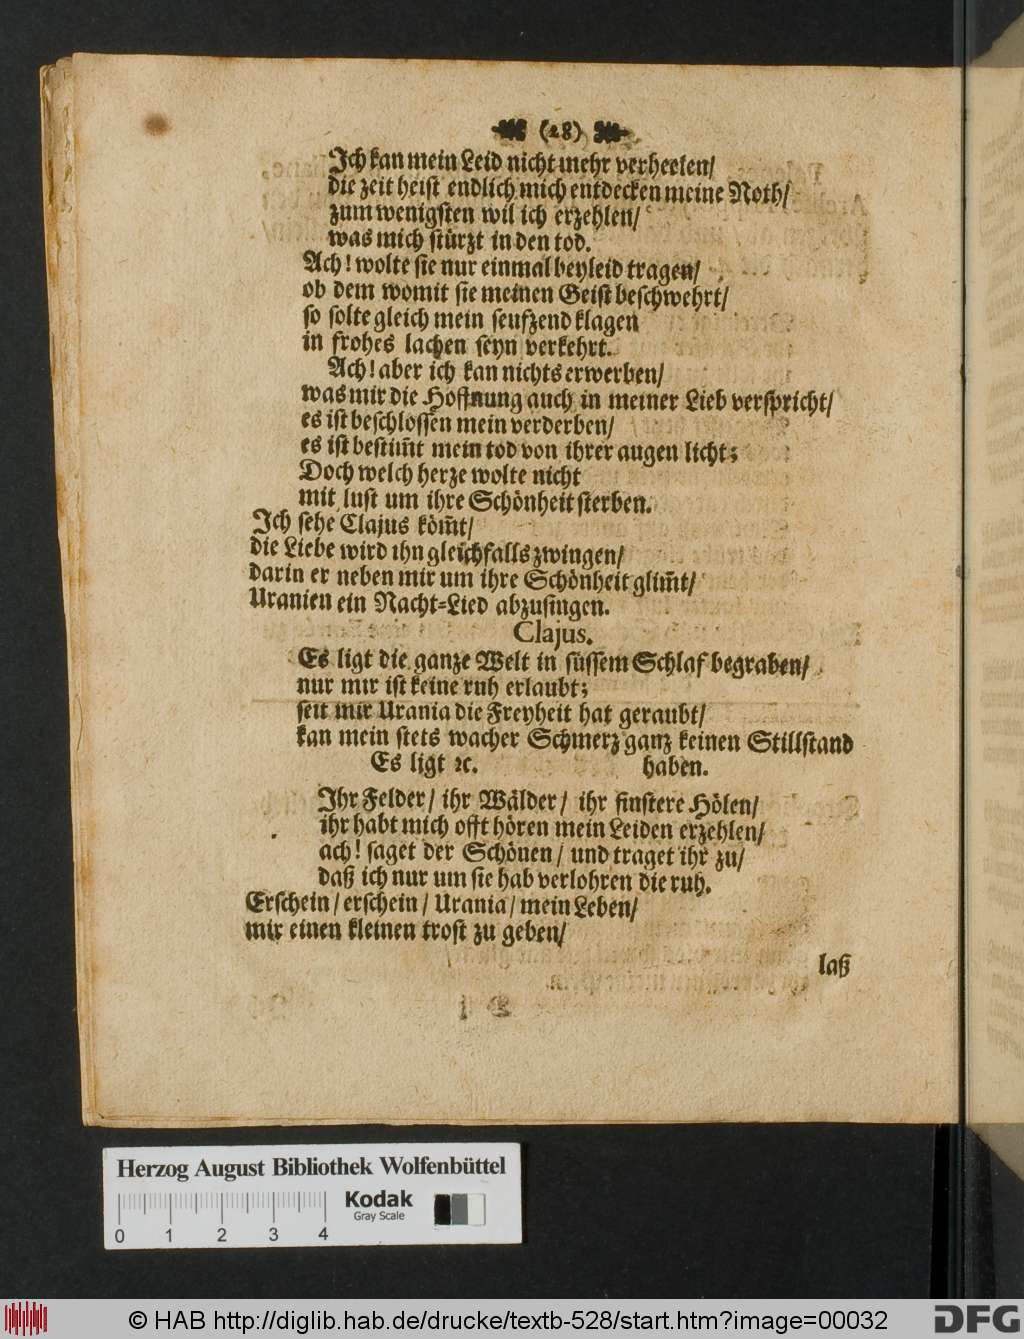 (28)
Ich kan mein Leid nicht mehr verheelen/
die zeit heist endlich mich entdecken meine Noth/
zum wenigsten wil ich erzehlen/
was mich stürzt in den tod.
Ach! wolte sie nur einmal beyleid tragen/
ob dem womit sie meinen Geist beschwehrt/
so solte gleich mein seufzend klagen
in frohes lachen seyn verkehrt.
Ach! aber ich kan nichts erwerben/
was mir die Hoffnung auch in meiner Lieb verspricht/
es ist beschlossen mein verderben/
es ist bestim̃t mein tod von ihrer augen licht;
Doch welch herze wolte nicht
mit lust um ihre Schönheit sterben.
Ich sehe Clajus köm̃t/
die Liebe wird ihn gleichfalls zwingen/
darin er neben mir um ihre Schönheit glim̃t/
Uranien ein Nacht-Lied abzusingen.
Clajus.
Es ligt die ganze Welt in süssem Schlaf begraben/
nur mir ist keine ruh erlaubt;
seit mir Urania die Freyheit hat geraubt/
kan mein stets wacher Schmerz ganz keinen Stillstand
Es ligt ꝛc. haben.
Ihr Felder/ ihr Wälder/ ihr finstere Hölen/
ihr habt mich offt hören mein Leiden erzehlen/
ach! saget der Schönen/ und traget ihr zu/
daß ich nur um sie hab verlohren die ruh.
Erschein/ erschein/ Urania/ mein Leben/
mir einen kleinen trost zu geben/
laß
Herzog August Bibliothek Wolfenbüttel
Kodak
Gray Scale
0 1 2 3 4
© HAB http://diglib.hab.de/drucke/textb-528/start.htm?image=00032
DFG